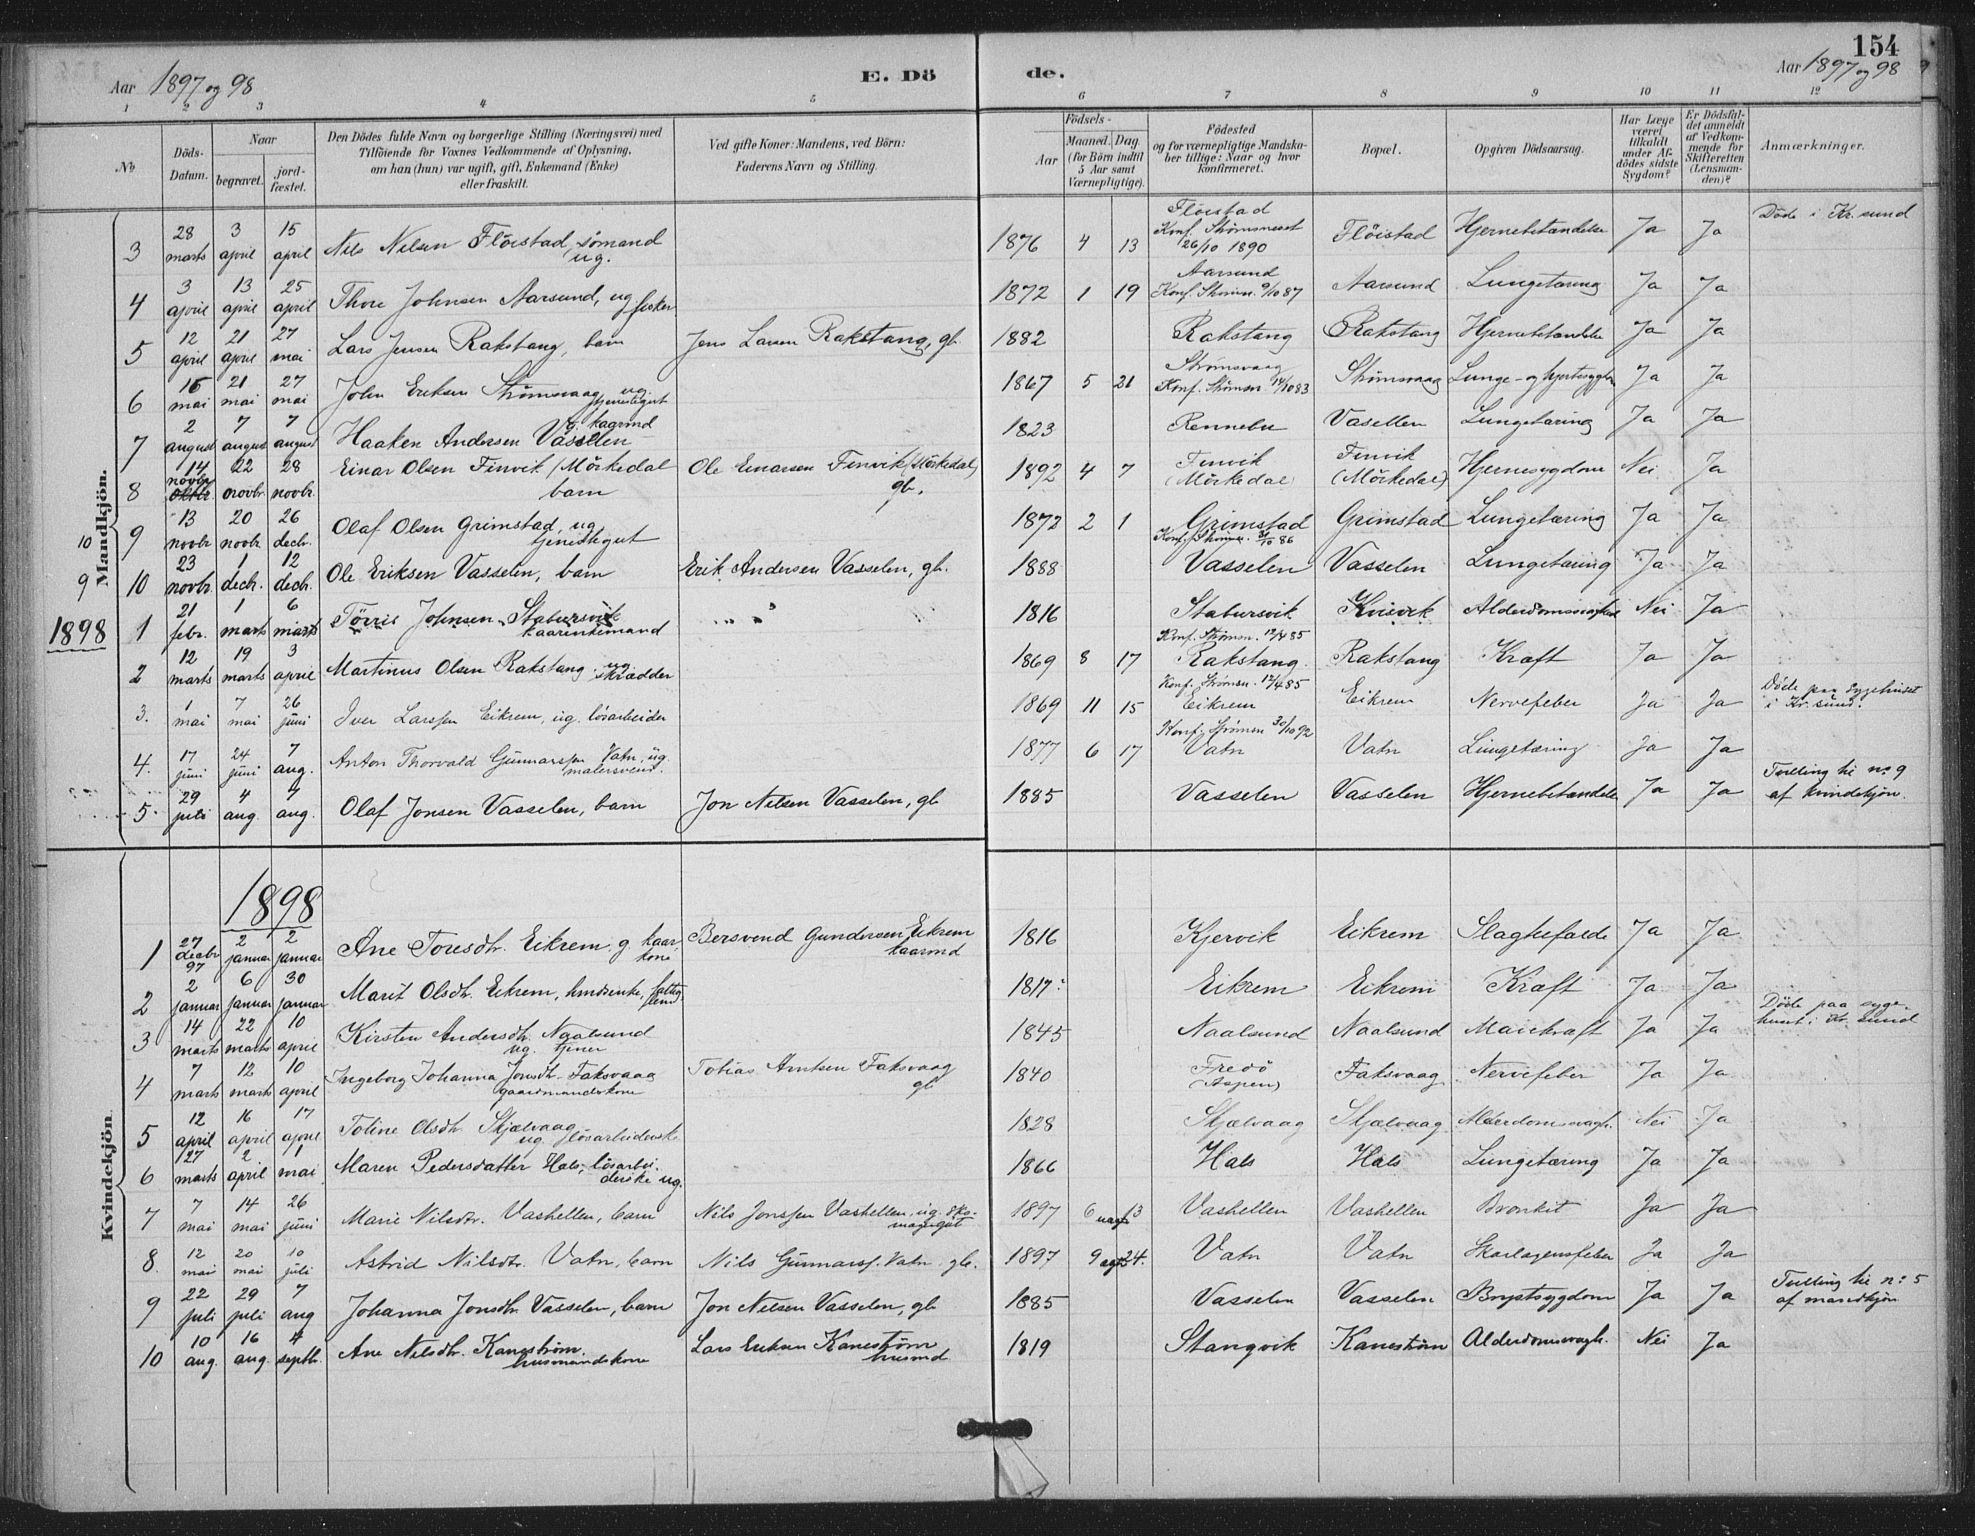 154
Aar 1897 og 98
E. Dö de.
Aar 1897 og 98
1 2 3 4 5 6 7 8 9 10 11 12
No
Döds-Datum.
Naar
begravet.
jord-fæstet.
Den Dödes fulde Navn og borgerlige Stilling (Næringsvei) med
Tilföiende for Voxnes Vedkommende af Oplysning,
om han (hun) var ugift, gift, Enkemand (Enke)
eller fraskilt.
Ved gifte Koner: Mandens, ved Börn:
Faderens Navn og Stilling.
Födsels-
Aar
Maaned. Dag
(for Börn indtil
5 Aar samt
Værnepligtige).
Födested
og for værnepligtige Mandska-
ber tillige: Naar og hvor
konfirmeret.
Bopæl.
Opgiven Dödsaarsag.
Har Læge
været
tilkaldt
under Af-
dödes sidste
Sygdom?
Er Dödsfal-
det anmeldt
af Vedkom-
mende for
Skifteretten
(Lensman-
den)?
Anmærkninger.
Mandkjön.
3 28 marts 3 april 15 april Nils Nilsen Flöistad, sömand ug. 1876 4 13 Flöistad Konf. Strømsneset 26/10 1890 Flöistad Hjernebetændelse Ja Ja Döde i Kr.sund
4 3 april 13 april 25 april Thore Johnsen Aarsund, ug fisker 1872 1 19 Aarsund Konf. Strømsn. 9/10 87 Aarsund Lungetæring Ja Ja
5 12 april 21 april 27 mai Lars Jensen Rakstang, barn Jens Larsen Rakstang, gb. 1882 Rakstang Rakstang Hjernebetændelse Ja Ja
6 15 mai 21 mai 27 mai John Eriksen Strømsvaag ug tjenestegut 1867 5 21 Strømsvaag Konf. Strømsn 14/10 83 Strømsvaag Lunge- og hjertesygdom Ja Ja
7 2 august 7 august 7 august Haaken Andersen Vasellen g. kaarmd 1823 Rennebu Vasellen Lungetæring Ja Ja
8 14 novbr oktbr. 22 novbr. 28 novbr. Einar Olsen Finvik (Mörkedal barn Ole Einarsen Finvik (Mörkedal) gb. 1892 4 7 Finvik (Mörkedal) Finvik (Mörkedal) Hjernesygdom Nei Ja
10
9 13 novbr 20 novbr. 26 decbr. Olaf Olsen Grimstad, ug tjenestegut 1872 2 1 Grimstad Konf. Strømsn. 31/10 86 Grimstad Lungetæring Ja Ja
9
10 23 novbr. 1 decbr. 12 decbr. Ole Eriksen Vasselen, barn Erik Andersen Vasselen, gb. 1888 Vasselen Vasselen Lungetæring Ja Ja
1898
1 21 febr. 1 marts 6 marts Törris Johnsen Stabursvik kaarenkemand 1816 Stabursvik Kvisvik Alderdomssvaghed Nei Ja
2 12 marts 19 marts 3 april Martinus Olsen Rakstang ug skrædder 1869 8 17 Konf. Strømsn. 12/4 85 Rakstang. Rakstang Kræft Ja Ja
3. 1 mai 7 mai 26 juni Iver Larssen Eikrem, ug. lösarbeider 1869 11 15 Konf. Strømsn. 12/4 85 Eikrem Eikrem Nervefeber Ja Ja Döde paa Sygehuset i Kr.sund.
4. 17 juni 24 juni 7 aug. Anton Thorvald Gunnarssen Vatn, ug. malersvend. 1877 6 17 Konf. Strømsn 30/10 92 Vatn Vatn Lungetæring Ja Ja
5. 29 juli 4 aug. 7 aug. Olaf Jonsen Vasselen, barn Jon Nilsen Vasselen, gb 1885 Vasselen Vasselen Hjernebetændelse Ja Ja Tvilling til no 9 af kvindekjön.
Kvindekjön
1898
1 27 decbr 97 2 januar 2 januar Ane Toresdtr. Eikrem g. kaar-kone Bersvend Gundersen Eikrem kaarmd 1816 Kjervik Eikrem Slagtilfælde Ja Ja
2 2 januar 6 januar 30 januar Marit Olsdtr. Eikrem, husmdsenke, fattiglem 1817 Eikrem Eikrem Kræft Ja Ja
3 14 marts 22 marts 10 april Kirsten Andersdtr. Naalsund ug. tjener 1845 Naalsund Naalsund Mavekræft Ja Ja Döde paa syge-huset i Kr.sund
4 7 marts 12 marts 10 april Ingeborg Johanna Jonsdtr. Faksvaag gaardmandskone Tobias Arntsen Faksvaag gb 1840 Fredö (Aspen) Faksvaag Nervefeber Ja Ja
5 12 april 16 april 17 april Toline Olsdtr. Skjelvaag ug lösarbeiderske 1828 Skjelvaag Skjelvaag Alderdomssvagh. Nei Ja
6 27 marts 2 april 1 mai Maren Pedersdatter Hals, lösarbei-derske ug. 1866 Hals Hals Lungetæring Ja Ja
7 7 mai 14 mai 26 juni Marie Nilsdtr. Vashellen, barn Nils Jonssen Vashellen, ug. sko-magergut 1897 6 13 Vashellen Vashellen Bronkit Ja Ja
8. 12 mai 20 mai 10 juli Astrid Nilsdtr. Vatn, barn Nils Gunnarss. Vatn gb. 1897 9 24. Vatn Vatn Skarlagensfeber Ja Ja
9 22 juli 29 juli 7 aug Johanna Jonsdtr. Vasselen, barn Jon Nilsen Vasselen, gb 1885 Vasselen Vasselen Brystsygdom Ja Ja Tvilling til no 5 af mandkjön
10 10 aug. 16 aug. 4 septbr. Ane Nilsdtr. Kanestrøm. husmandskone Lars Eriksen Kanestrøm husmd 1819 Stangvik Kanestrøm Alderdomssvagh. Nei Ja